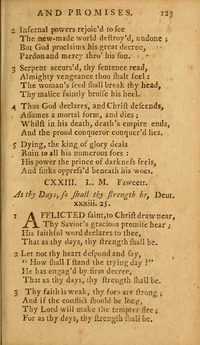 AND PROMISES. 123
2 Infernal powers rejoic'd to see
The new-made world destroy'd, undone;
But God proclaims his great decree,
Pardon and mercy thro' his son.
3 Serpent accurs'd, thy sentence read,
Almighty vengeance thou shalt feel:
The woman's seed shall break thy head,
Thy malice faintly bruise his heel.
4 Thus God declares, and Christ descends,
Assumes a mortal form, and dies;
Whilst in his death, death's empire ends,
And the proud conqueror conquer'd lies.
5 Dying, the king of glory deals
Ruin to all his numerous foes:
His power the prince of darkness feels,
And sinks oppress'd beneath his woes.
CXXIII. L. M. Fawcett.
As thy Days, so shall thy strength be, Deut.
xxxiii. 25.
1 AFFLICTED saint, to Christ draw near,
Thy Savior's gracious promise hear;
His faithful word declares to thee,
That as thy days, thy strength shall be.
2 Let not thy heart despond and say,
"How shall I stand the trying day?"
He has engag'd by firm decree,
That as thy days, thy strength shall be.
3 Thy faith is weak, thy foes are strong;
And if the conflict should be long,
Thy Lord will make the tempter flee;
For as thy days, thy strength shall be.